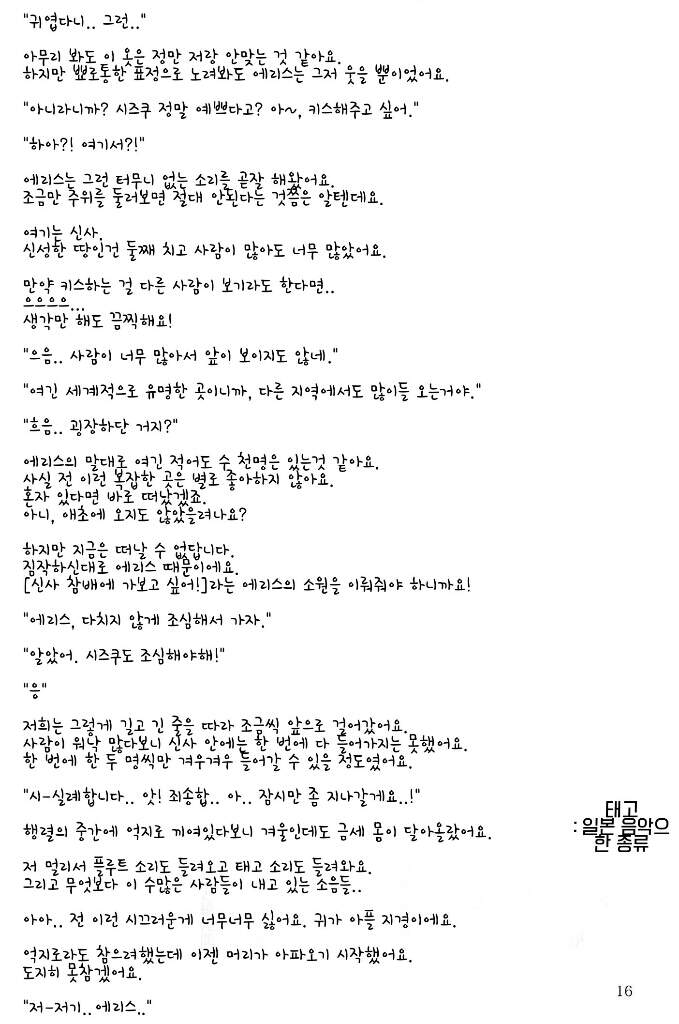 "귀엽다니.. 그런.."
아무리 봐도 이 옷은 정만 저랑 안맞는 것 같아요.
하지만 뾰로통한 표정으로 노려봐도 에리스는 그저 웃을 뿐이었어요.
"아니라니까? 시즈쿠 정말 예쁘다고? 아~, 키스해주고 싶어."
"하아?! 여기서?!"
에리스는 그런 터무니 없는 소리를 곧잘 해왔어요.
조금만 주위를 둘러보면 절대 안된다는 것쯤은 알텐데요.
여기는 신사.
신성한 땅인건 둘째 치고 사람이 많아도 너무 많았어요.
만약 키스하는 걸 다른 사람이 보기라도 한다면..
으으으으...
생각만 해도 끔찍해요!
"으음.. 사람이 너무 많아서 앞이 보이지도 않네."
"여긴 세계적으로 유명한 곳이니까, 다른 지역에서도 많이들 오는거야."
"흐음.. 굉장하단 거지?"
에리스의 말대로 여긴 적어도 수 천명은 있는것 같아요.
사실 전 이런 복잡한 곳은 별로 좋아하지 않아요.
혼자 있다면 바로 떠났겠죠.
아니, 애초에 오지도 않았을려나요?
하지만 지금은 떠날 수 없답니다.
짐작하신대로 에리스 때문이에요.
[신사 참배에 가보고 싶어!]라는 에리스의 소원을 이뤄줘야 하니까요!
"에리스, 다치지 않게 조심해서 가자."
"알았어. 시즈쿠도 조심해야해!"
"응"
저희는 그렇게 길고 긴 줄을 따라 조금씩 앞으로 걸어갔어요.
사람이 워낙 많다보니 신사 안에는 한 번에 다 들어가지는 못했어요.
한 번에 한 두 명씩만 겨우겨우 들어갈 수 있을 정도였어요.
"시-실례합니다.. 앗! 죄송합.. 아.. 잠시만 좀 지나갈게요..!"
행렬의 중간에 억지로 끼여있다보니 겨울인데도 금세 몸이 달아올랐어요.
태고
: 일본 음악으
한 종류
저 멀리서 플루트 소리도 들려오고 태고 소리도 들려와요.
그리고 무엇보다 이 수많은 사람들이 내고 있는 소음들..
아아.. 전 이런 시끄러운게 너무너무 싫어요. 귀가 아플 지경이에요.
억지로라도 참으려했는데 이젠 머리가 아파오기 시작했어요.
도저히 못참겠어요.
"저-저기.. 에리스.."
16